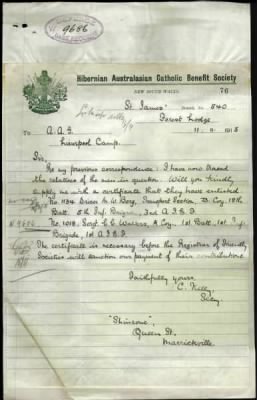 9686
Hibernian Australasian Catholic Benefit Society
NEW SOUTH WALES
76
St. James' Branch No. 540
Forest Lodge
To A.A.G. 11. 9. 1915
Liverpool Camp.
Sir,
Re my previous correspondence: I have now traced
the relatives of the men in question. Will you kindly
supply me with a certificate that they have enlisted.
No. 1134 Driver M. W. Berg, Transport Section, D. Coy, 18th
Batt. 5th Inf. Brigade, 2nd A I & F
No. 1013, Sergt. C. C. Walters, A Coy, 1st Batt., 1st Inf.
Brigade, 1st A I & F.
The certificate is necessary before the Registrar of Friendly
Societies will sanction our payment of their contributions
Faithfully yours,
Secy.
Queen St.
Marrickville